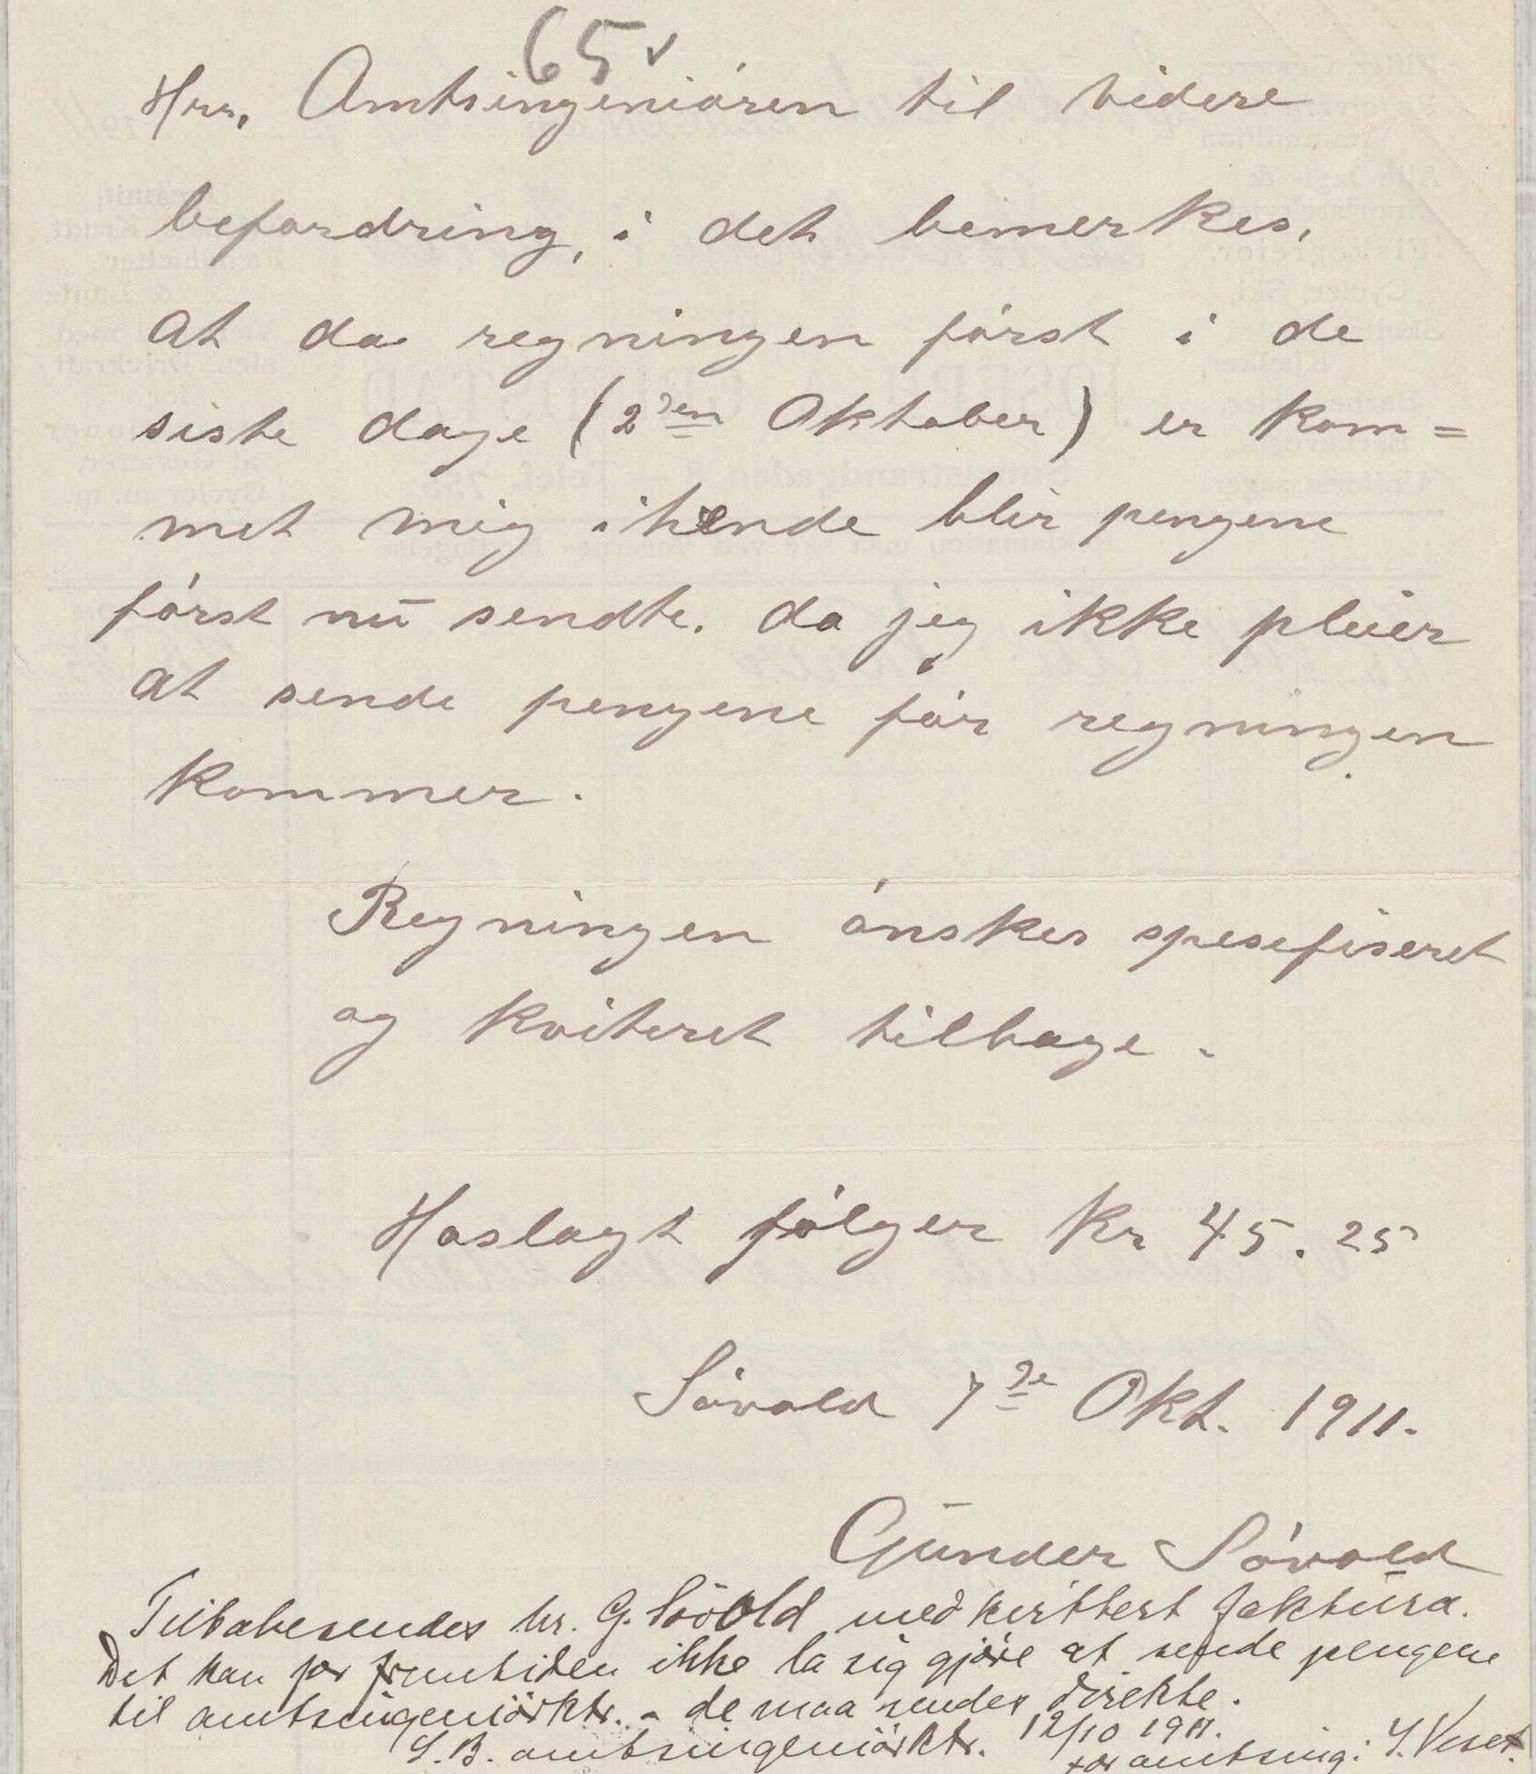 65 ✓
Hrr. Amtsingenióren til videre
befordring, i det bemerkes,
at da regningen fórst i de
siste dage (2den Oktober) er kom=
met mig ihende blir pengene
fórst nu sendte. da jeg ikke pleier
at sende pengene fór regningen
kommer.
Regningen ónskes spesefiseret
og kviteret tilbage.
Hoslagt fólger Kr 45.25
Sóvold 7de Okt. 1911.
Gunder Sóvold
Tilbakesendes hr. G. Sövold med kvittert faktura.
Det kan for fremtiden ikke la sig gjöre at sende pengene
til amtsingeniörktr. - de maa sendes direkte.
S.B. amtsingeniörktr. 12/10 1911.
for amtsing: Veset.